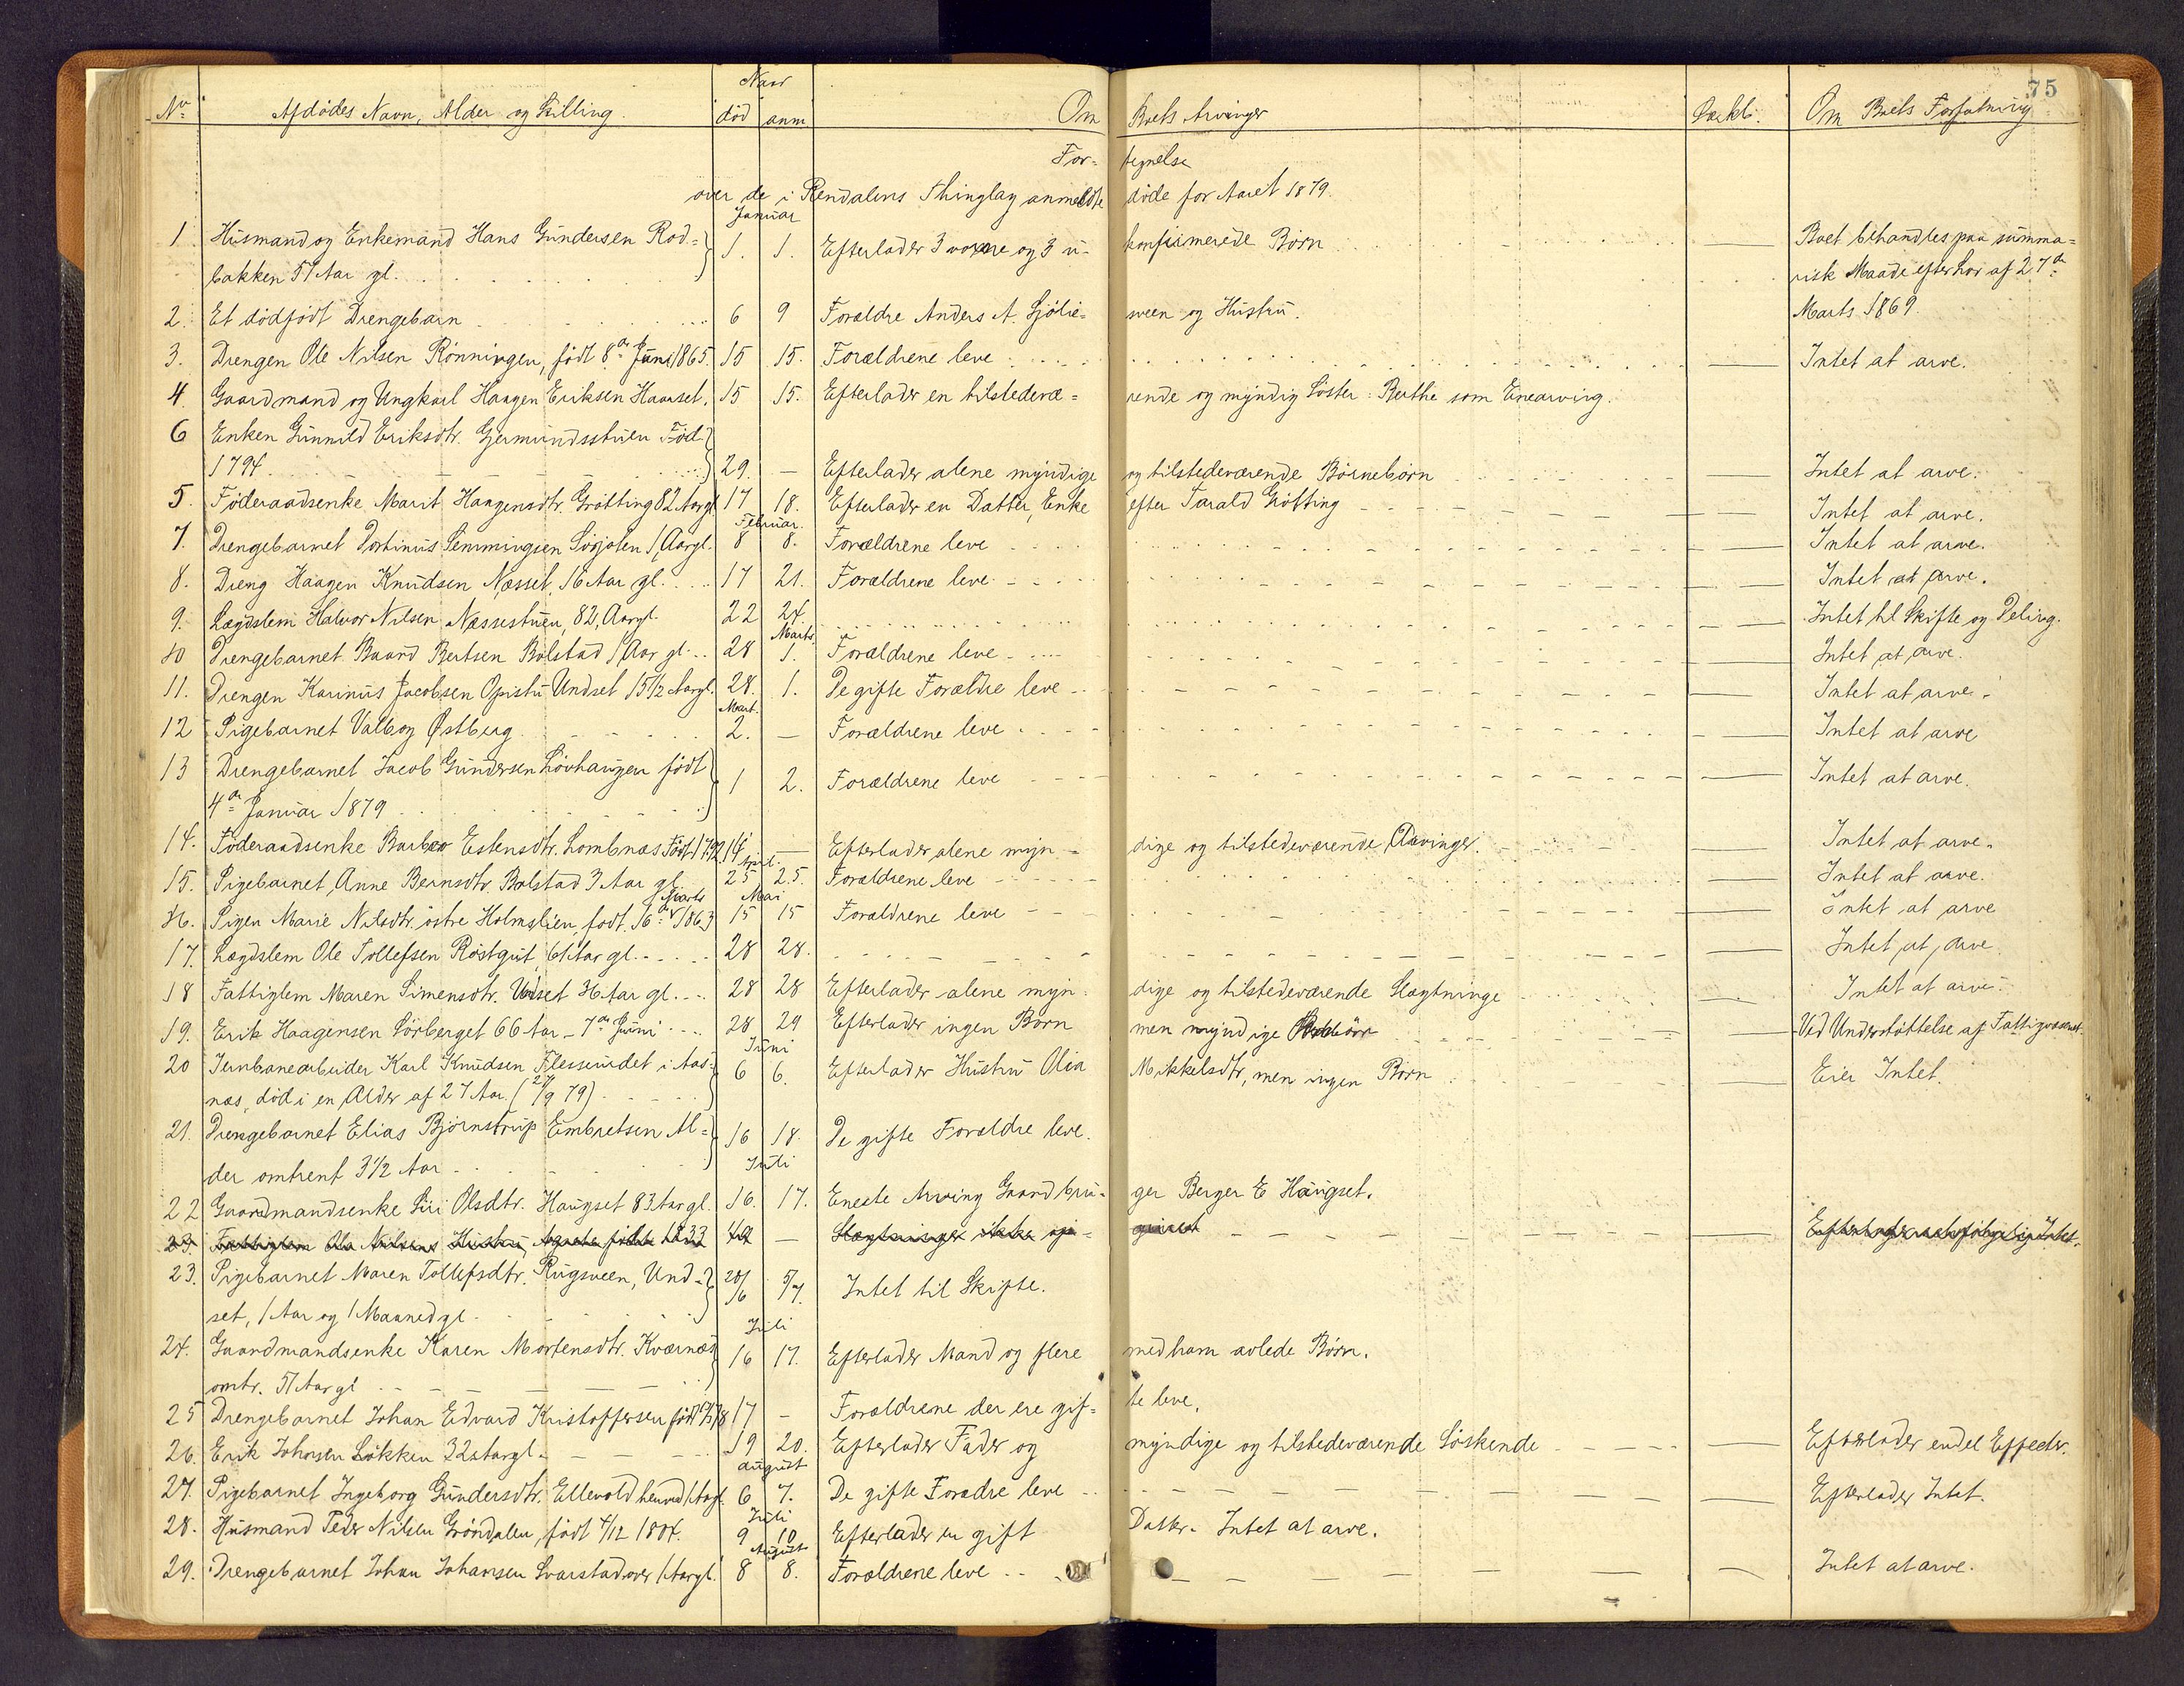 75
No. Afdødes Navn, Alder og Stilling. Naar død anm Om Boets Arvinger Om Boets Forfatning
For- tegnelse
over de i Rendalens Thinglag anmeldte døde for Aaret 1879.
Januar
1 Husmand og Enkemand Hans Gundersen Rod- 1. 1. Efterlader 3 voxne og 3 u- konfirmerede Børn Boet behandles paa summa-
bakken 51 Aar gl. risk Maade efter Lov af 27de
2. Et dødfødt Drengebarn 6 9 Forældre Anders A. Sjølie- sveen og Hustru. Marts 1869.
3. Drengen Ole Nilsen Rønningen, født 8de Juni 1865. 15 15. Forældrene leve Intet at arve.
4. Gaardmand og Ungkarl Haagen Eriksen Haarset. 15 15. Efterlader en tilstedevæ- rende og myndig Søster: Berthe som Enearving.
6 Enken Gunnild Eriksdtr. Germundsstuen Fød
1794. 29. — Efterlader alene myndige og tilstedeværende Børnebørn Intet at arve.
5. Føderaadsenke Marit Haagensdtr. Grøtting 82 Aargl 17 18. Efterlader en Datter, Enke efter Tarald Grøtting Intet at arve.
Februar.
7. Drengebarnet Portinus Simmingsen 1 Aargl. 8 8. Forældrene leve Intet at arve.
8. Dreng Haagen Knudsen Næsset, 16 Aar gl. 17 21. Forældrene leve Intet at arve.
9. Lægdslem Halvor Nilsen Næssestuen, 82, Aargl. 22 24. Intet til Skifte og Deling.
Marts
10 Drengebarnet Baard Bertsen Bolstad 1 Aar gl. 28 1. Forældrene leve Intet at arve.
11. Drengen Karinus Jacobsen Opistu Undset 15 1/2 Aargl. 28. 1. De gifte Forældre leve Intet at arve.
Mart.
12 Pigebarnet Valborg Østberg 2. — Forældrene leve Intet at arve
13 Drengebarnet Jacob Gundersen Løvhaugen født 1 2. Forældrene leve Intet at arve.
4de Januar 1879
14. Føderaadsenke Barbro Estensdtr. Lombnæs Født 1792 14 — Efterlader alene myn- dige og tilstedeværende Arvinger. Intet at arve.
April.
15. Pigebarnet Anne Bernsdtr. Bolstad 3 Aar gl 25 25. Forældrene leve Intet at arve.
Marts Mai
16. Pigen Marie Nilsdtr. østre Holmslien, født 16de 1863 15 15 Forældrene leve Intet at arve
17. Lægdslem Ole Tollefsen Røstgut, 61 Aar gl. 28 28. Intet at arve.
18 Fattiglem Maren Simensdtr. Undset 36 Aar gl. 28 28 Efterlader alene myn- dige og tilstedeværende Slægtninge Intet at arve.
19. Erik Haagensen Sørberget 66 Aar - 7de Juni 28 29 Efterlader ingen Børn men myndige Ved Understøttelse af Fattigvæsenet.
Juni
20 Jernbanearbeider Karl Knudsen Flesseundet i Aas- 6 6. Efterlader Hustru Olia Mikkelsdtr, men ingen Børn Eier Intet.
næs, død i en Alder af 27 Aar. (27/9 79)
21. Drengebarnet Elias Bjørnstrup Embretsen Al- 16 18. De gifte Forældre leve.
der omtrent 3 1/2 Aar
Juli
22 Gaardmandsenke Siri Olsdtr. Haugset 83 Aar gl. 16. 17. Eneste Arving Gaardbru- ger Berger E Haugset.
23. Fattiglem Ole Nilsens Hustru, Agnethe fødte 1833 — Slægtninge ikke op- givet Efterlader Intet.
23. Pigebarnet Maren Tollefsdtr. Rugsveen, Und- 20/6 5/7. Intet til Skifte.
set, 1 Aar og 1 Maaned gl.
Juli
24. Gaardmandsenke Karen Mortensdtr. Kværnæs 16 17. Efterlader Mand og flere med ham avlede Børn.
omtr. 51 Aar gl
25 Drengebarnet Johan Edvard Kristoffersen født 17 - Forældrene der ere gif- te leve.
26. Erik Johnsen Løkken 32 Aargl. 19 20. Efterlader Fader og myndige og tilstedeværende Søskende Efterlader endel Effecter.
August
27. Pigebarnet Ingeborg Gundersdtr. Ellevold henved 1 Aar. 6 7. De gifte Foradre leve Efterlader Intet.
Juli
28. Husmand Peder Nilsen Grøndalen, født 4/12 1804. 9 10 Efterlader en gift Datter. Intet at arve.
August
29. Drengebarnet Johan Johansen Svarstad over 1 Aargl. 8 8. Forældrene leve Intet at arve.